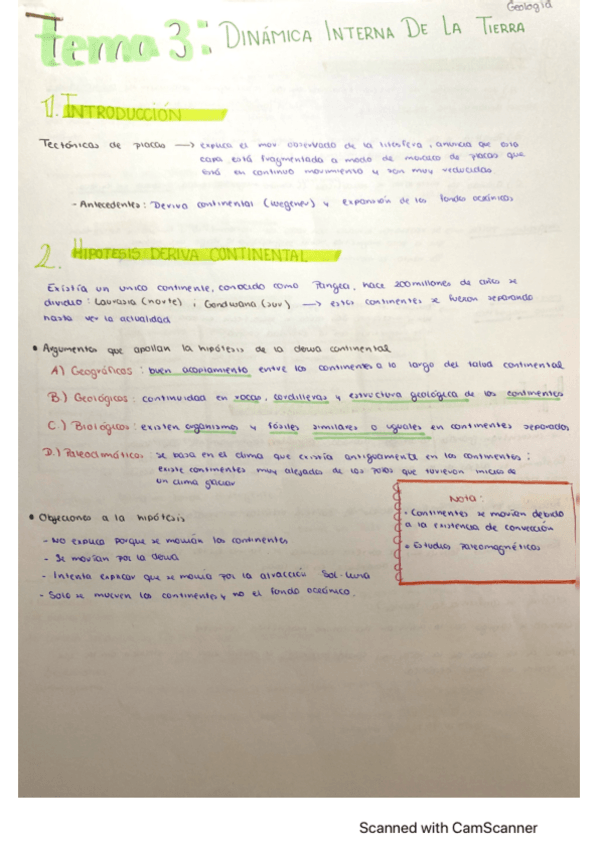 Geología
Tema 3: DINÁMICA INTERNA DE LA TIERRA
1. INTRODUCCIÓN
Tectónicas de placas → explica el mov observado de la litosfera, anuncia que esta
capa está fragmentada a modo de mosaico de placas que
está en continuo movimiento y son muy reducidas
- Antecedentes: Deriva continental (Wegener) y expansión de los fondos oceánicos
2. HIPOTESIS DERIVA CONTINENTAL
Existía un unico continente, conocido como Pangea, hace 200 millones de años se
dividio: Laurasia (norte) i Gondwana (sur) → estos continentes se fueron separando
hasta ver la actualidad
• Argumentos que apollan la hipótesis de la deriva continental
A) Geográficos: buen acoplamiento entre los continentes a lo largo del talud continental
B) Geológicos: continuidad en rocas, cordilleras y estructura geológica de los continentes
C) Biológicos: existen organismos y fósiles similares o iguales en continentes separados
D.) Paleoclimáticos: se basa en el clima que existía antiguamente en los continentes;
existe continentes muy alejados de los polos que tuvieron indicios de
un clima glaciar
• Objeciones a la hipótesis
- No explica porque se movían los continentes
- Se movían por la deriva
- Intenta explicar que se movía por la atracción Sol-Luna
- Solo se mueven los continentes y no el fondo oceánico.
Nota:
• Continentes se movían debido
a la existencia de convección
• Estudios Paleomagnéticos
Scanned with CamScanner